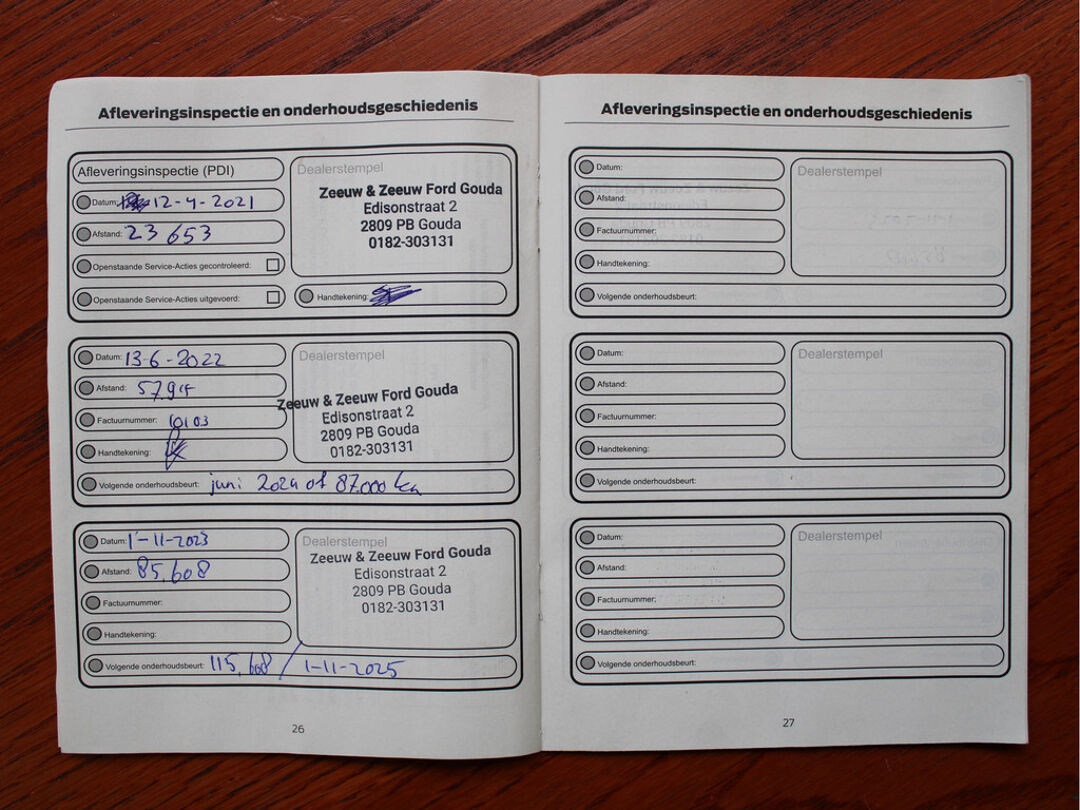 Afleveringsinspectie en onderhoudsgeschiedenis
Afleveringsinspectie (PDI)
Datum: 12-4-2021
Afstand: 23 653
Openstaande Service-Acties gecontroleerd:
Openstaande Service-Acties uitgevoerd:
Dealerstempel
Zeeuw & Zeeuw Ford Gouda
Edisonstraat 2
2809 PB Gouda
0182-303131
Handtekening:
Datum: 13-6-2022
Afstand:
Factuurnummer: 10103
Handtekening:
Dealerstempel
Zeeuw & Zeeuw Ford Gouda
Edisonstraat 2
2809 PB Gouda
0182-303131
Volgende onderhoudsbeurt: juni 2024 of 87.000 km
Datum: 1-11-2023
Afstand: 85.608
Factuurnummer:
Handtekening:
Dealerstempel
Zeeuw & Zeeuw Ford Gouda
Edisonstraat 2
2809 PB Gouda
0182-303131
Volgende onderhoudsbeurt: 115.608 / 1-11-2025
26
Afleveringsinspectie en onderhoudsgeschiedenis
Datum:
Afstand:
Factuurnummer:
Handtekening:
Dealerstempel
Volgende onderhoudsbeurt:
Datum:
Afstand:
Factuurnummer:
Handtekening:
Dealerstempel
Volgende onderhoudsbeurt:
Datum:
Afstand:
Factuurnummer:
Handtekening:
Dealerstempel
Volgende onderhoudsbeurt:
27